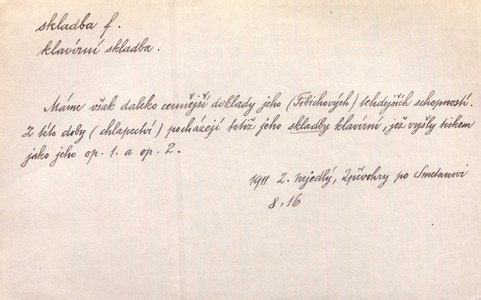 skladba f.
klavírní skladba.
Máme však daleko cennější doklady jeho (Fibichových) tehdejších schopností.
Z této doby (chlapectví) pocházejí totiž jeho skladby klavírní, jež vyšly tiskem
jako jeho op. 1. a op. 2.
1911 Z. Nejedlý, Zpěvohry po Smetanovi
8, 16